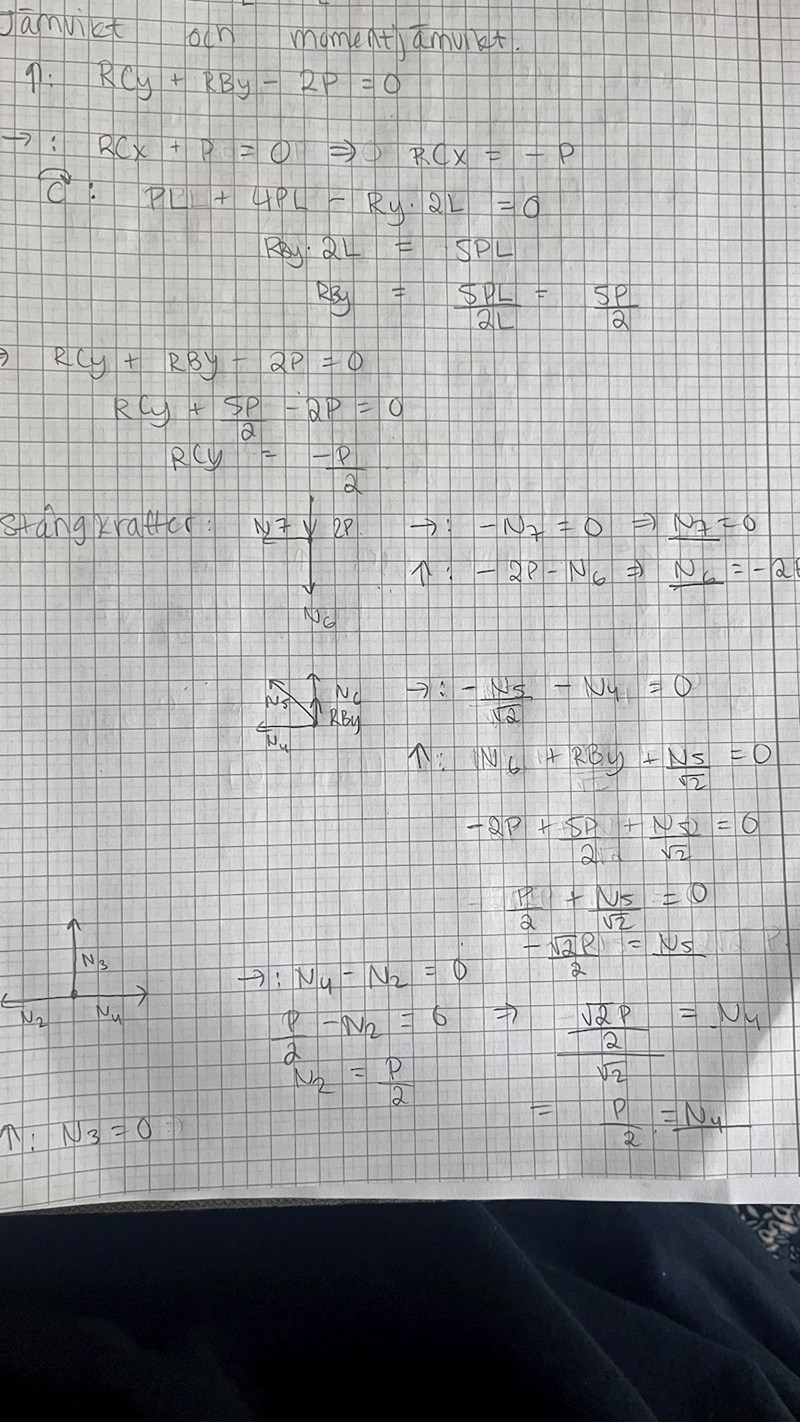 Jämvikt och momentjämvikt.
↑: RCy + RBy - 2P = 0
→: RCx + P = 0 ⇒ RCx = -P
C: PL + 4PL - Ry·2L = 0
RBy·2L = 5PL
RBy = 5PL/2L = 5P/2
⇒ RCy + RBy - 2P = 0
RCy + 5P/2 - 2P = 0
RCy = -P/2
Stångkrafter: N7 2P →: -N7 = 0 ⇒ N7 = 0
↑: -2P - N6 ⇒ N6 = -2P
N6
N5 N6 →: -N5/√2 - N4 = 0
RBy
N4
↑: N6 + RBy + N5/√2 = 0
-2P + 5P/2 + N5/√2 = 0
P/2 + N5/√2 = 0
-√2P/2 = N5
N3
→: N4 - N2 = 0
N2 N4
P/2 - N2 = 0 ⇒ √2P/2/√2 = N4
N2 = P/2
= P/2 = N4
↑: N3 = 0